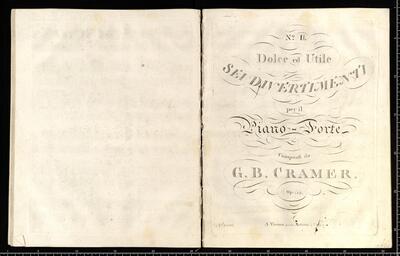 No. II.
Dolce ed Utile
SEI DIVERTIMENTI
per il
Piano-Forte
Composti da
G. B. CRAMER.